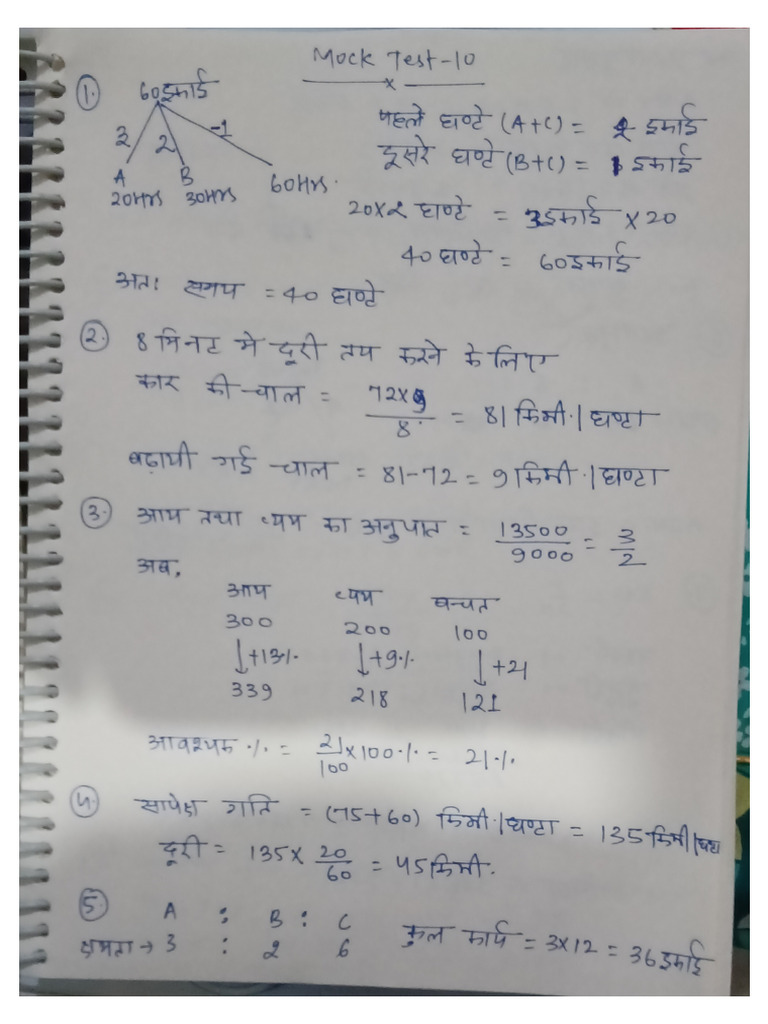 Mock Test-10
x
1.
60इकाई
3 2 -1
A B
20Hrs 30Hrs 60Hrs.
पहले घण्टे (A+C) = 2 इकाई
दूसरे घण्टे (B+C) = 1 इकाई
20×2 घण्टे = 3इकाई × 20
40 घण्टे = 60इकाई
अतः समय = 40 घण्टे
2. 8 मिनट मे दूरी तय करने के लिए
कार की चाल = 72×9/8 = 81 किमी./घण्टा
बढ़ायी गई चाल = 81-72 = 9 किमी./घण्टा
3. आय तथा व्यय का अनुपात = 13500/9000 = 3/2
अब,
आय व्यय बचत
300 200 100
↓+13% ↓+9% ↓+21
339 218 121
आवश्यक % = 21/100 × 100% = 21%
4. सापेक्ष गति = (75+60) किमी./घण्टा = 135 किमी/घण्टा
दूरी = 135 × 20/60 = 45 किमी.
5. A : B : C
क्षमता → 3 : 2 6 कुल कार्य = 3×12 = 36 इकाई